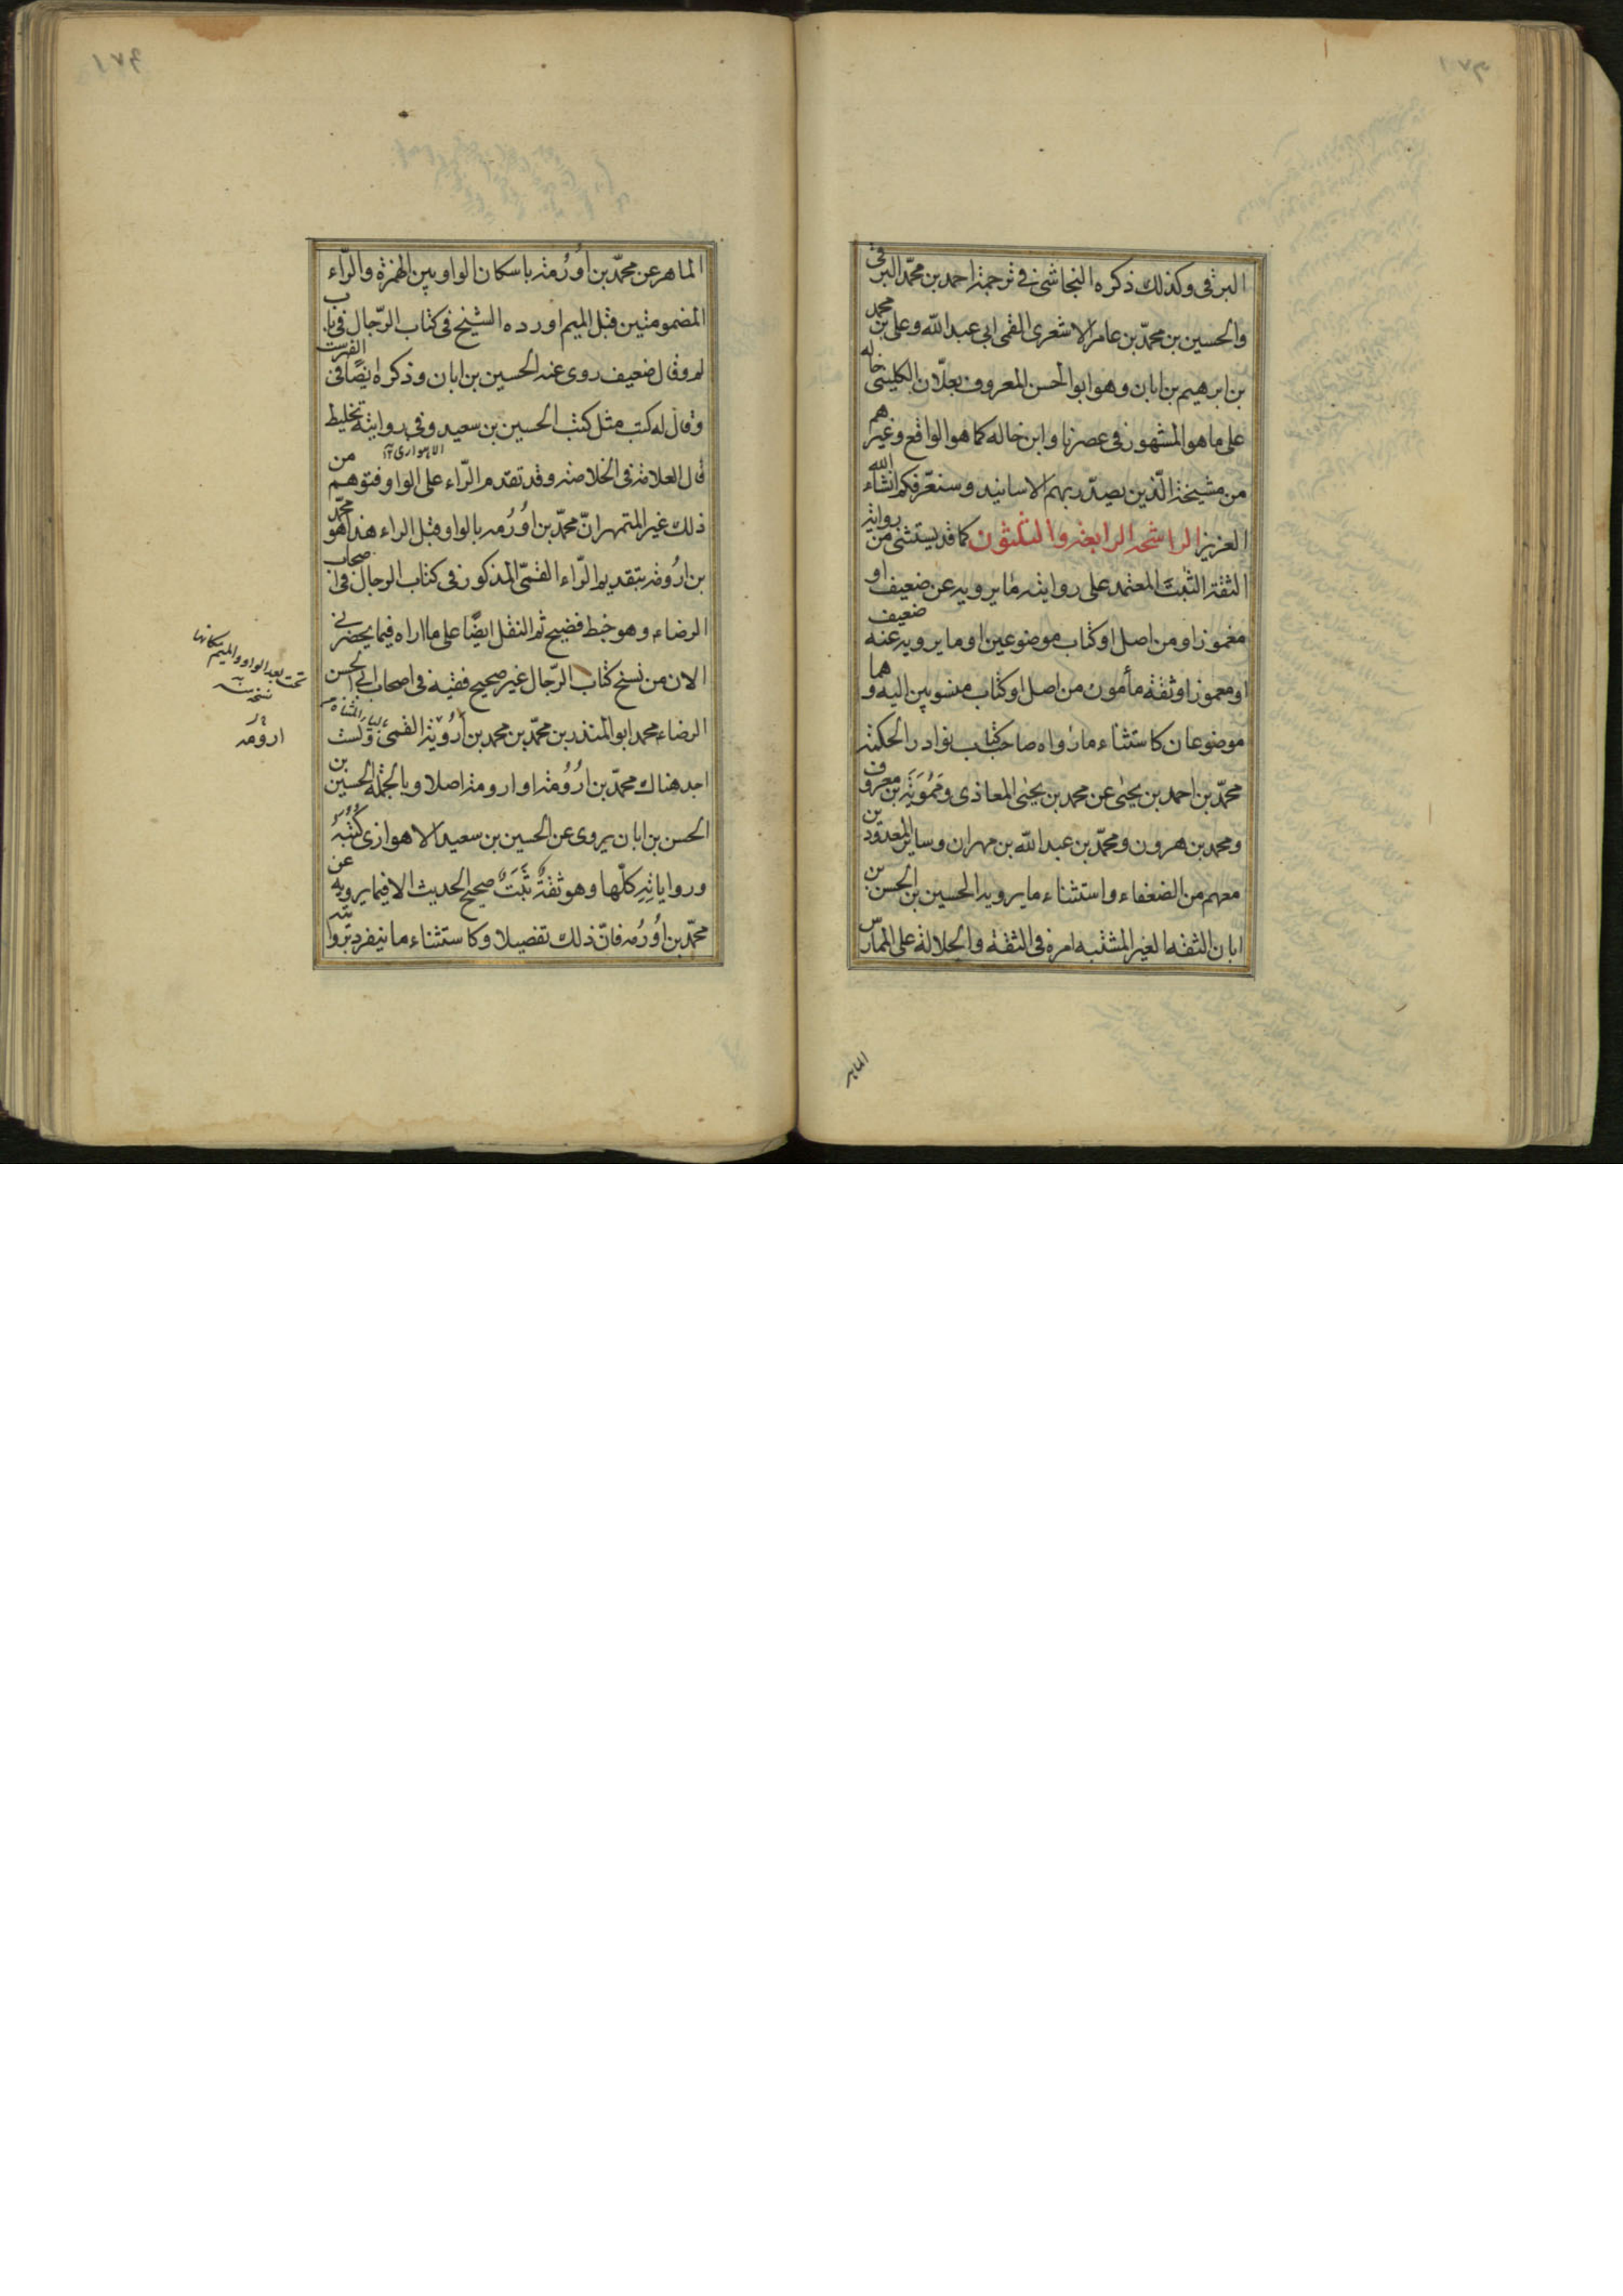 البرقى وكذلك ذكره النجاشى فى ترجمة احمد بن محمّد البرقى
والحسين بن محمّد بن عامر الاشعرى القمى ابى عبد الله وعلى بن محمد
بن ابرهيم بن ابان وهو ابو الحسن المعروف بعلّان الكلينى خاله
على ما هو المشهور فى عصرنا وابن خاله كما هو الواقع وغيرهم
من مشيخة الّذين يصدّر بهم الاسانيد وسنعرّفكم انشاء الله
العزيز الراشحة الرابعة والثلثون كما قد يستثنى من رواية
الثقة الثبت المعتمد على روايته ما يرويه عن ضعيف او
مغموز او من اصل او كتاب موضوعين او ما يرويه عنه ضعيف
او مغموز او ثقة مأمون من اصل او كتاب منسوبين اليه وهما
موضوعان كاستثناء ما رواه صاحب كتاب نوادر الحكمة
محمّد بن احمد بن يحيى عن محمد بن يحيى المعاذى وممويه بن معروف
ومحمد بن هرون ومحمّد بن عبد الله بن مهران وساير المعدودين
معهم من الضعفاء واستثناء ما يرويه الحسين بن الحسن بن
ابان الثقه الغير المشتبه امره فى الثقة والجلالة على الممارس
الماهر
الماهر عن محمّد بن اُورُمة باسكان الواو بين الهمزة والرّاء
المضمومتين قبل الميم اورده الشيخ فى كتاب الرّجال فى باب
لم وقال ضعيف روى عنه الحسين بن ابان وذكره ايضًا فى الفهرست
وقال له كتب مثل كتب الحسين بن سعيد وفى روايته تخليط
الاهوازى
قال العلامة فى الخلاصة وقد تقدم الرّاء على الواو فتوهم من
ذلك غير المتمهر انّ محمّد بن اُورُمه بالواو قبل الراء هذا هو محمّد
بن ارُومة بتقديم الرّاء القمّى المذكور فى كتاب الرجال فى اصحاب
الرضاء وهو خبط فضيح ثم النقل ايضًا على ما اراه فيما يحضرنى
الان من نسخ كتاب الرّجال غير صحيح ففيه فى اصحاب ابى الحسن
الرضاء محمد ابو المنذر بن محمّد بن محمد بن اُرُوَيْة القمى ولست
اجد هناك محمّد بن ارُوُمة او ارومة اصلا وبالجملة الحسين بن
الحسن بن ابان يروى عن الحسين بن سعيد الاهوازى كُتُبه
ورواياتِهِ كلّها وهو ثقةٌ ثَبَتٌ صحيح الحديث الا فيما يرويه عن
محمّد بن اُورُمه فانّ ذلك تفصيلا وكاستثناء ما ينفرد بروايته
تحت بعد الواو والميم مكانها
نسخه
ارومه